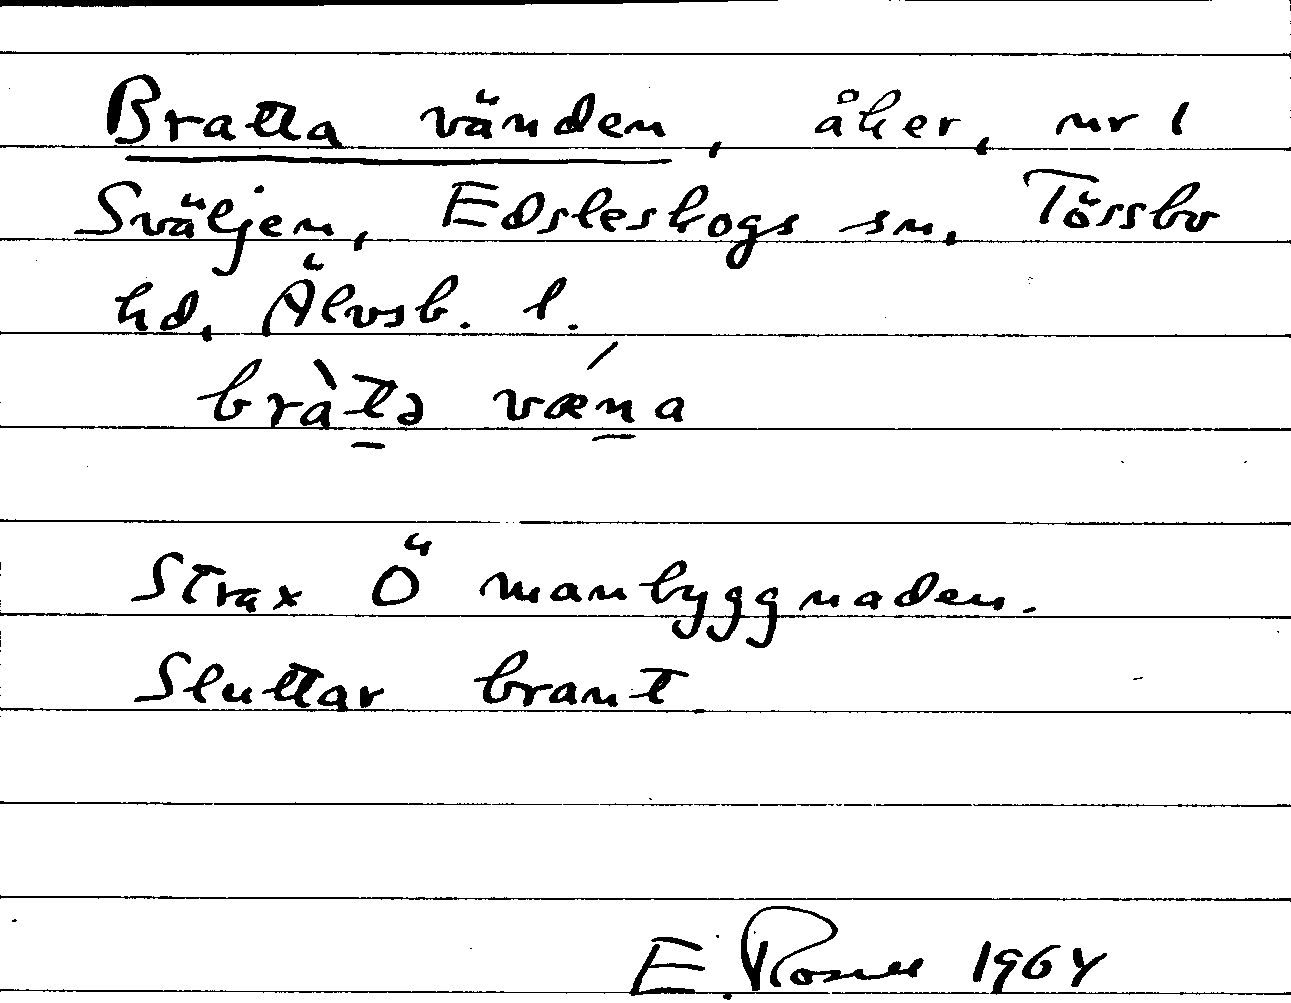 Bratta vänden, åker, nr 1
Sväljen, Edsleskogs sn, Tössbo
hd, Älvsb. l.
bràt̠ə væń̠a
Strax Ö manbyggnaden.
Sluttar brant.
E. Rosell 1964